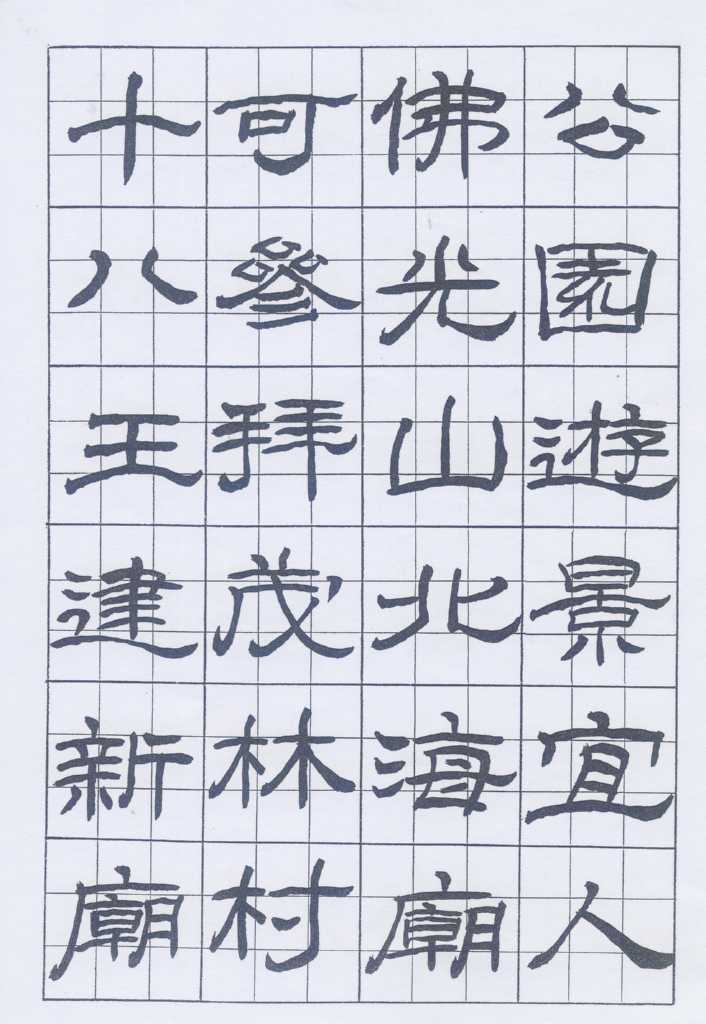 公園遊景宜人
佛光山北海廟
可參拜茂林村
十八王建新廟